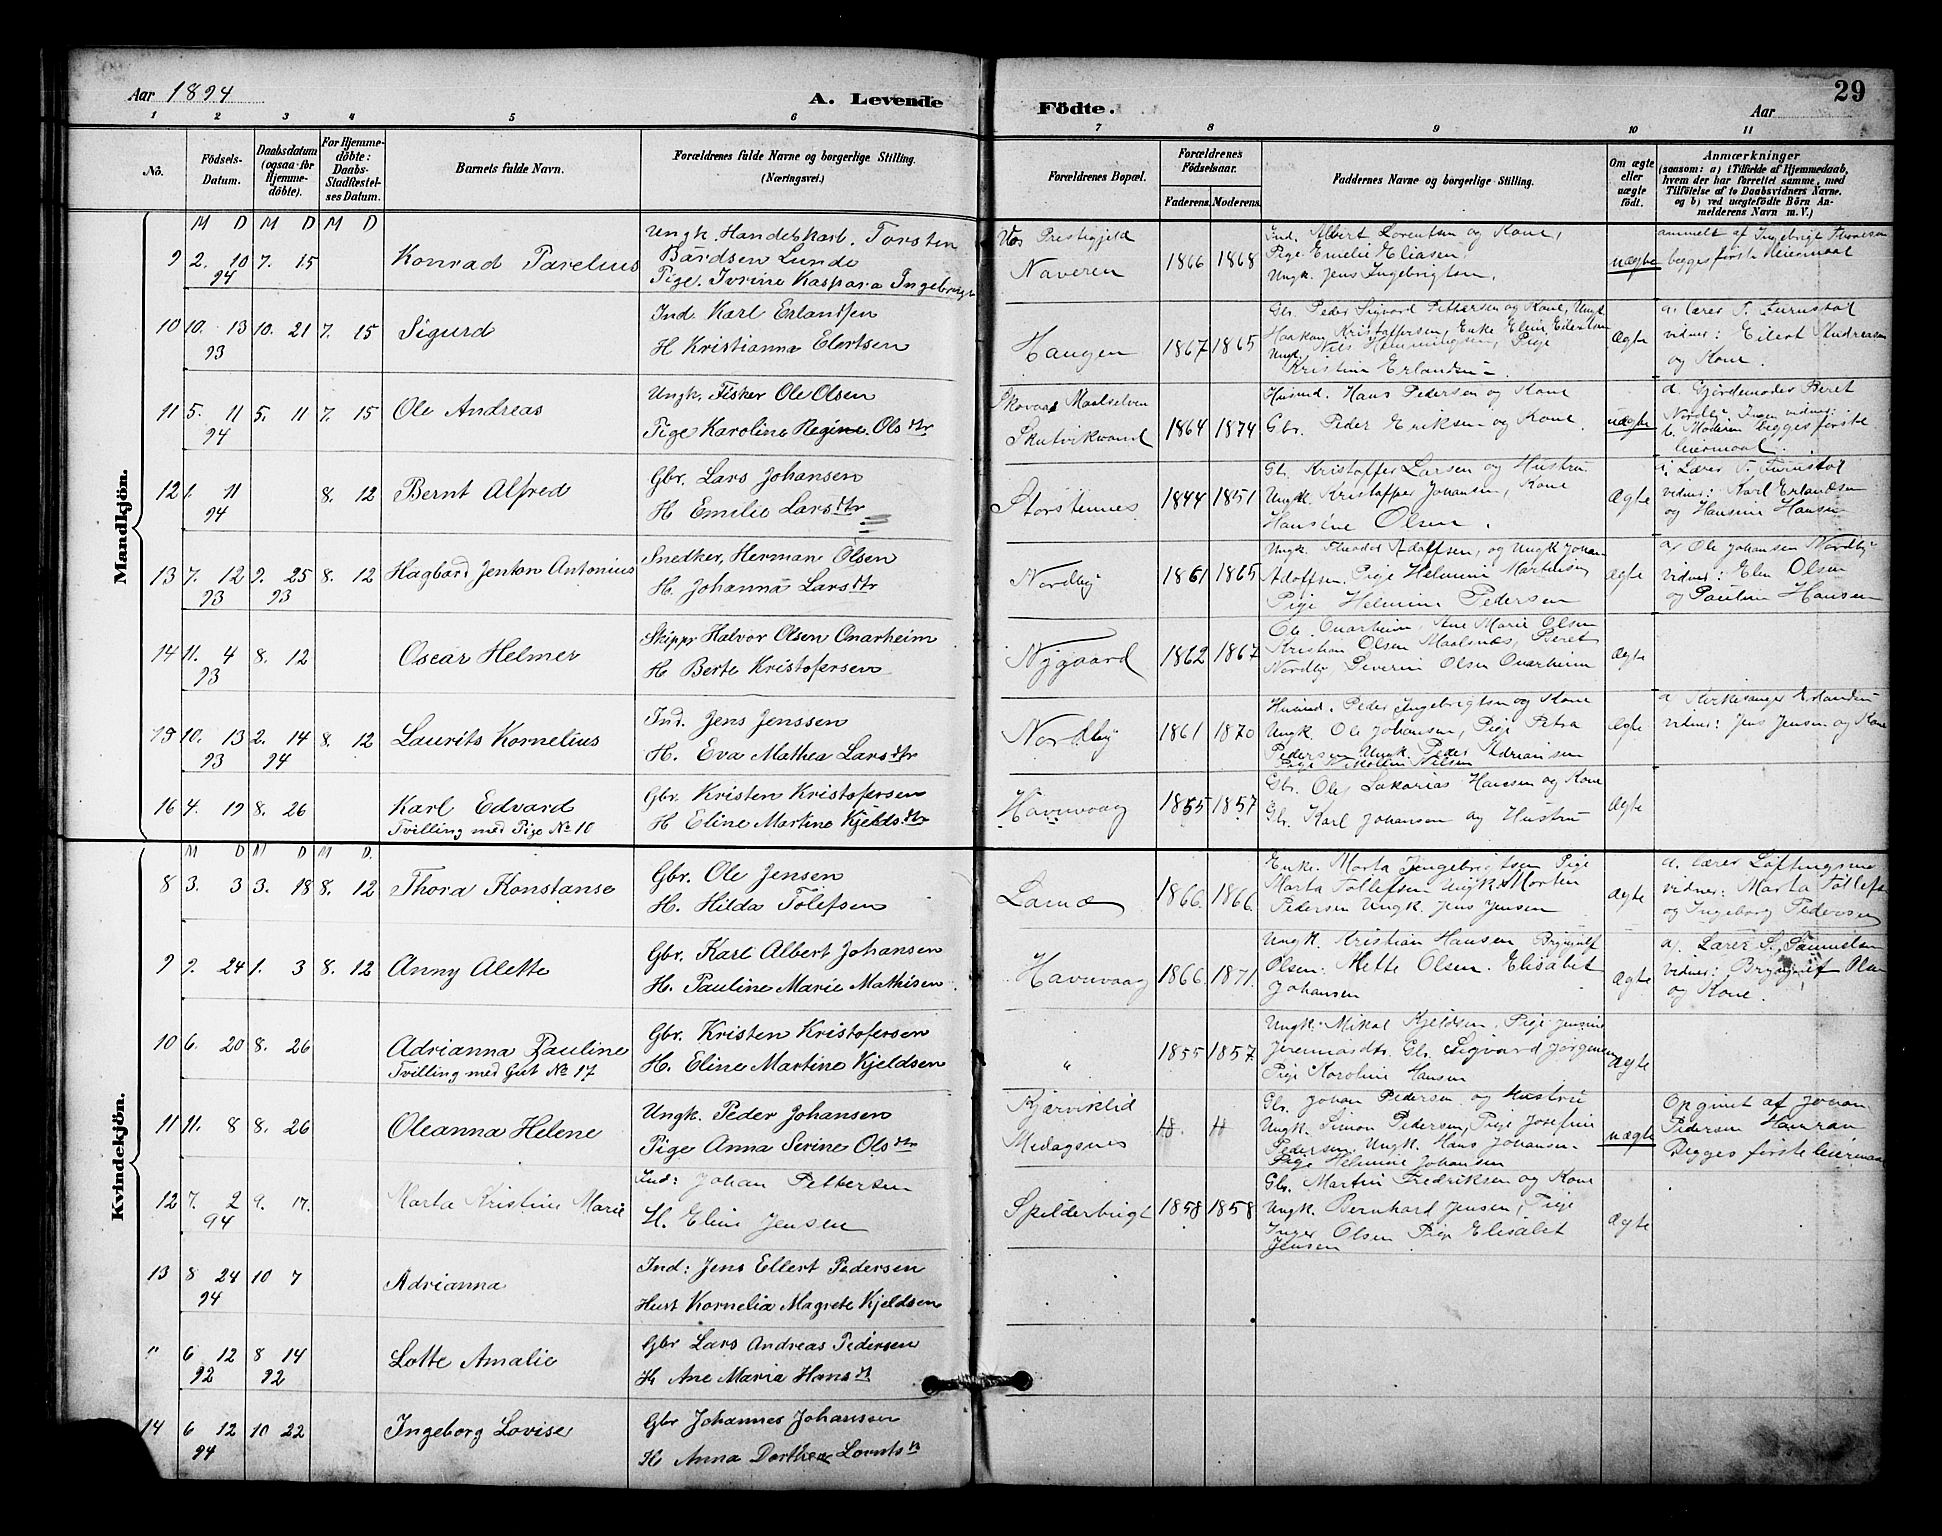 Aar 1894
A. Levende
Födte.
Aar
29
1 2 3 4 5 6 7 8 9 10 11
No.
Födsels-Datum.
Daabsdatum (ogsaa for Hjemmedöbte).
For Hjemmedöbte: Daabs-Stadfæstelses Datum.
Barnets fulde Navn.
Forældrenes fulde Navne og borgerlige Stilling. (Næringsvei.)
Forældrenes Bopæl.
Forældrenes Födselsaar.
Faderens. Moderens.
Faddernes Navne og borgerlige Stilling.
Om ægte eller uægte födt.
Anmærkninger
(saasom: a) i Tilfælde af Hjemmedaab, hvem der har forrettet samme, med Tilföielse af to Daabsvidners Navne, og b) ved uægtefödte Börn Anmelderens Navn m. V.)
Mandkjön.
M D M D M D
9 2. 10 94 7. 15 Konrad Parelius
Ungk. Handelskarl. Torsten
Bårdsen Lunde
Pige. Ivrine Kaspara Ingebrigts
Vos Prestegjeld
Naveren
1866 1868
Ind. Albert Lorentsen og Kone,
Pige Emelie Eliasen
Ungk. Jens Ingebrigtsen.
uægte
anmelt af Ingebrigt
begges første leiermaal
10 10. 13 93 10. 21 7. 15 Sigurd
Ind. Karl Erlandsen
H Kristianna Elertsen
Haugen
1867 1865
Gbr. Peder Sigvard Pettersen og Kone, Ungk
Haakon Kristoffersen, Enke Elen
Ungk. Nils Hemmingsen, Pige
Kristine Erlandsen
Ægte
a. Lærer T. Furustøl
vidner: Eilert Andreasen
og Kone.
11 5. 11 94 5. 11 7. 15 Ole Andreas
Ungk. Fisker Ole Olsen
Pige Karoline Regine Olsdtr
Skovaas Maalselven
Skutvikvand
1864 1874
Husmd. Hans Pedersen og Kone
Gbr. Peder Eriksen og Kone.
uægte
a. Gjordemoder Beret
Nordby. Ingen vidner.
b. Moderen begges første
leiermaal.
12 1. 11 94 8. 12 Bernt Alfred
Gbr. Lars Johansen
H Emilie Larsdtr
Storstennes
1844 1851
Gb. Kristoffer Larsen og Hustru
Ungk. Kristoffer Johansen, Kone
Hansine Olsen.
Ægte
a; Lærer T. Furustøl
vidner: Karl Erlandsen
og Hansine Hansen
13 7. 12 93 9. 25 93 8. 12 Hagbard Jenton Antonius
Snedker, Herman Olsen
H. Johanna Larsdtr
Nordby
1861 1865
Ungk. Theodor Adolfsen, og Ungk Johan
Adolfsen. Pige Helmine Martinsen
Pige Helmine Pedersen
Ægte
a; Ole Johansen Nordby
vidner: Elen Olsen
og Pauline Hansen
14 11. 4 93 8. 12 Oscar Helmer
Skippr Halvor Olsen Onarheim
H Berte Kristofersen
Nygaard
1862 1867
Ole Onarheim, Ane Marie Olsen
Kristian Olsen Maalsnes, Beret
Nordby, Severin Olsen Onarheim
Ægte
15 10. 13 93 2. 14 94 8. 12 Laurits Kornelius
Ind. Jens Jenssen
H. Eva Mathea Larsdtr
Nordby
1861 1870
Husmd. Peder Ingebrigtsen og Kone
Ungk. Ole Johansen, Pige Petra
Pedersen Ungk. Peder Adriansen
Pige Nikoline Nilsen
Ægte
a Kirkesanger Erlandsen
vidner: Jens Jensen og Kone
16 4. 19 8. 26 Karl Edvard
Tvilling med Pige No 10
Gbr. Kristen Kristofersen
H Eline Martine Kjeldsdtr
Havnvaag
1855 1857
Gbr. Ole Sakarias Hansen og Kone
Gb. Karl Johansen og Hustru
Ægte
Kvindekjön.
M D M D M D.
8 3. 3 3. 18 8. 12 Thora Konstanse
Gbr. Ole Jensen
H. Hilda Tölefsen
Lamo
1866. 1866.
Enke. Marta Ingebrigtsen Pige
Marta Tollefsen Ungk. Morten
Pedersen Ungk. Jens Jensen
Ægte
a. Lærer
vidner: Marta Tollefs
og Ingeborg Pedersen
9 9. 24 1. 3 8. 12 Anny Alette
Gbr. Karl Albert Johansen
H. Pauline Marie Mathisen
Havnvaag
1866. 1871.
Ungk. Kristian Hansen Brynjulf
Olsen. Mette Olsen. Elisabet
Johansen
Ægte
a). Lærer
vidner: Brynjulf Olsen
og Kone.
10 6. 20 8. 26 Adrianna Pauline
Tvilling med Gut No 17
Gbr. Kristen Kristofersen
H. Eline Martine Kjeldsen
"
1855 1857
Ungk. Mikal Kjeldsen. Pige Jensine
Jeremiasdtr. Gb. Sigvard Jørgensen
Pige Karoline Hansen
Ægte
11 11. 8 8. 26 Oleanna Helene
Ungk. Peder Johansen
Pige Anna Serine Olsdtr
Kjærviklid
Medagsnes
Gb. Johan Pedersen og Hustru
Ungk. Simon Pedersen, Pige Josefine
Pedersen, Ungk. Hans Johansen.
Pige Helmine Johansen
uægte
Opgivet af Johan
Pedersen
Begges første leiermaal
12 7. 2 94 9. 17. Marta Kristine Marie
Ind: Johan Pettersen
H. Eline Jensen
Spilderbugt
1858 1858
Gb. Martin Fredriksen og Kone
Ungk. Bernhard Jensen, Pige
Inger Olsen Pige Elisabet
Jensen
Ægte
13 8 24 94 10 7 Adrianna
Ind: Jens Ellert Pedersen
Hust Kornelia Magrete Kjeldsen
" 6 12 92 8 14 92 Lotte Amalie
Gbr Lars Andreas Pedersen
H Ane Maria Hansdt
14 6 12 94 10 22 Ingeborg Lovise
Gbr Johannes Johansen
H Anna Dorthea Lorntsdt